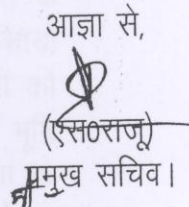 आज्ञा से,
(एस0राजू)
प्रमुख सचिव।